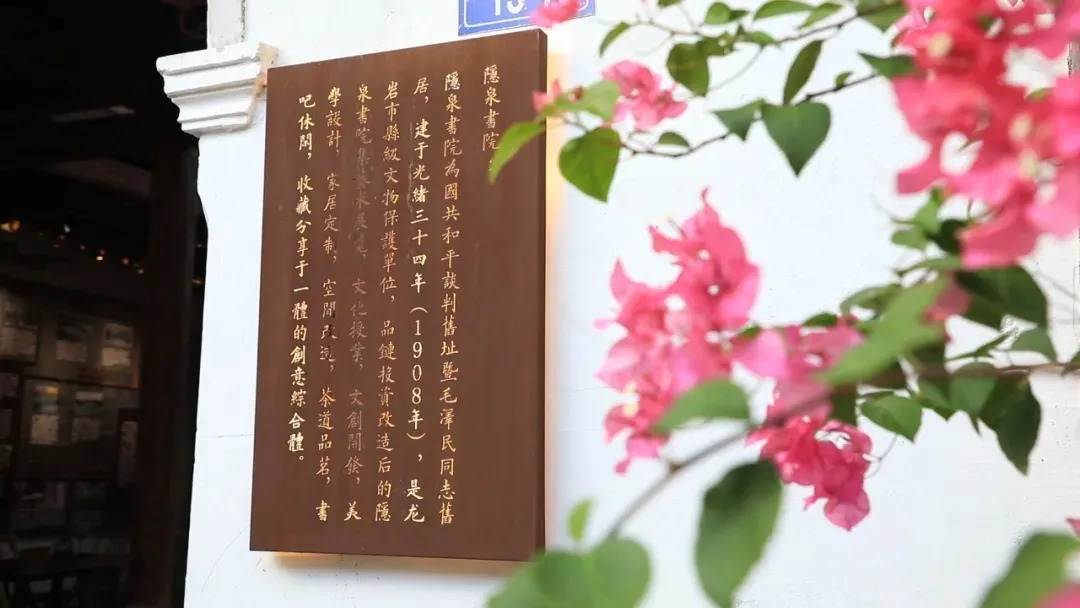 隱泉書院：
隱泉書院為國共和平談判舊址暨毛澤民同志舊
居，建于光緒三十四年（1908年），是龙
岩市縣級文物保護單位，品鏈投資改造后的隱
泉書院集藝术展覽，文化授業，文創開發，美
學設計，家居定制，空間改造，茶道品茗，書
吧休閑，收藏分享于一體的創意綜合體。